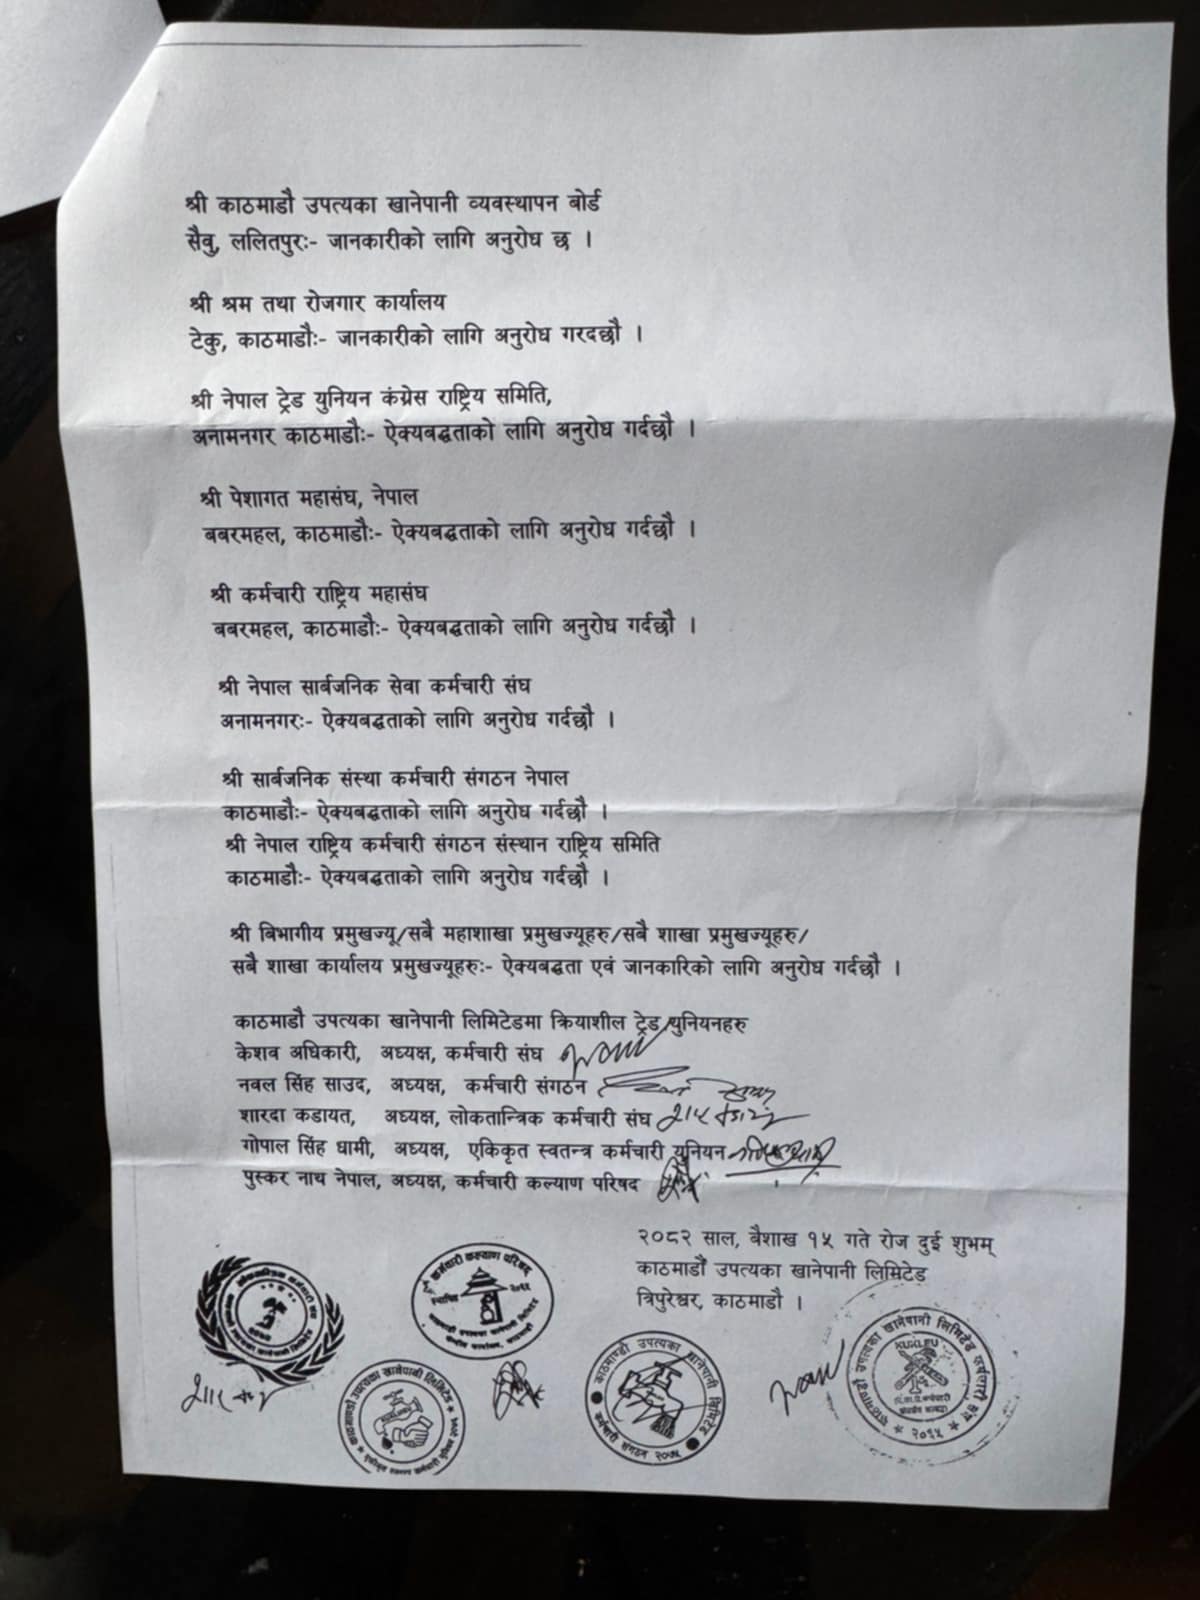 श्री काठमाडौ उपत्यका खानेपानी व्यवस्थापन बोर्ड
सैबु, ललितपुरः- जानकारीको लागि अनुरोध छ ।
श्री श्रम तथा रोजगार कार्यालय
टेकु, काठमाडौः- जानकारीको लागि अनुरोध गरदछौ ।
श्री नेपाल ट्रेड युनियन कंग्रेस राष्ट्रिय समिति,
अनामनगर काठमाडौः- ऐक्यबद्धताको लागि अनुरोध गर्दछौ ।
श्री पेशागत महासंघ, नेपाल
बबरमहल, काठमाडौः- ऐक्यबद्धताको लागि अनुरोध गर्दछौ ।
श्री कर्मचारी राष्ट्रिय महासंघ
बबरमहल, काठमाडौः- ऐक्यबद्धताको लागि अनुरोध गर्दछौ ।
श्री नेपाल सार्बजनिक सेवा कर्मचारी संघ
अनामनगरः- ऐक्यबद्धताको लागि अनुरोध गर्दछौ ।
श्री सार्बजनिक संस्था कर्मचारी संगठन नेपाल
काठमाडौः- ऐक्यबद्धताको लागि अनुरोध गर्दछौ ।
श्री नेपाल राष्ट्रिय कर्मचारी संगठन संस्थान राष्ट्रिय समिति
काठमाडौः- ऐक्यबद्धताको लागि अनुरोध गर्दछौ ।
श्री बिभागीय प्रमुखज्यू/सबै महाशाखा प्रमुखज्यूहरु/सबै शाखा प्रमुखज्यूहरु/
सबै शाखा कार्यालय प्रमुखज्यूहरुः- ऐक्यबद्धता एवं जानकारिको लागि अनुरोध गर्दछौ ।
काठमाडौ उपत्यका खानेपानी लिमिटेडमा क्रियाशील ट्रेड युनियनहरु
केशव अधिकारी, अध्यक्ष, कर्मचारी संघ
नवल सिंह साउद, अध्यक्ष, कर्मचारी संगठन
शारदा कडायत, अध्यक्ष, लोकतान्त्रिक कर्मचारी संघ
गोपाल सिंह धामी, अध्यक्ष, एकिकृत स्वतन्त्र कर्मचारी युनियन
पुस्कर नाथ नेपाल, अध्यक्ष, कर्मचारी कल्याण परिषद
२०८२ साल, बैशाख १५ गते रोज दुई शुभम्
काठमाडौं उपत्यका खानेपानी लिमिटेड
त्रिपुरेश्वर, काठमाडौ ।
कर्मचारी कल्याण परिषद्
काठमाण्डौ उपत्यका खानेपानी लिमिटेड
काठमाण्डौ उपत्यका खानेपानी लिमिटेड
कर्मचारी संगठन २०७५
काठमाण्डौ उपत्यका खानेपानी लिमिटेड कर्मचारी संघ
KUKLEU
२०६५